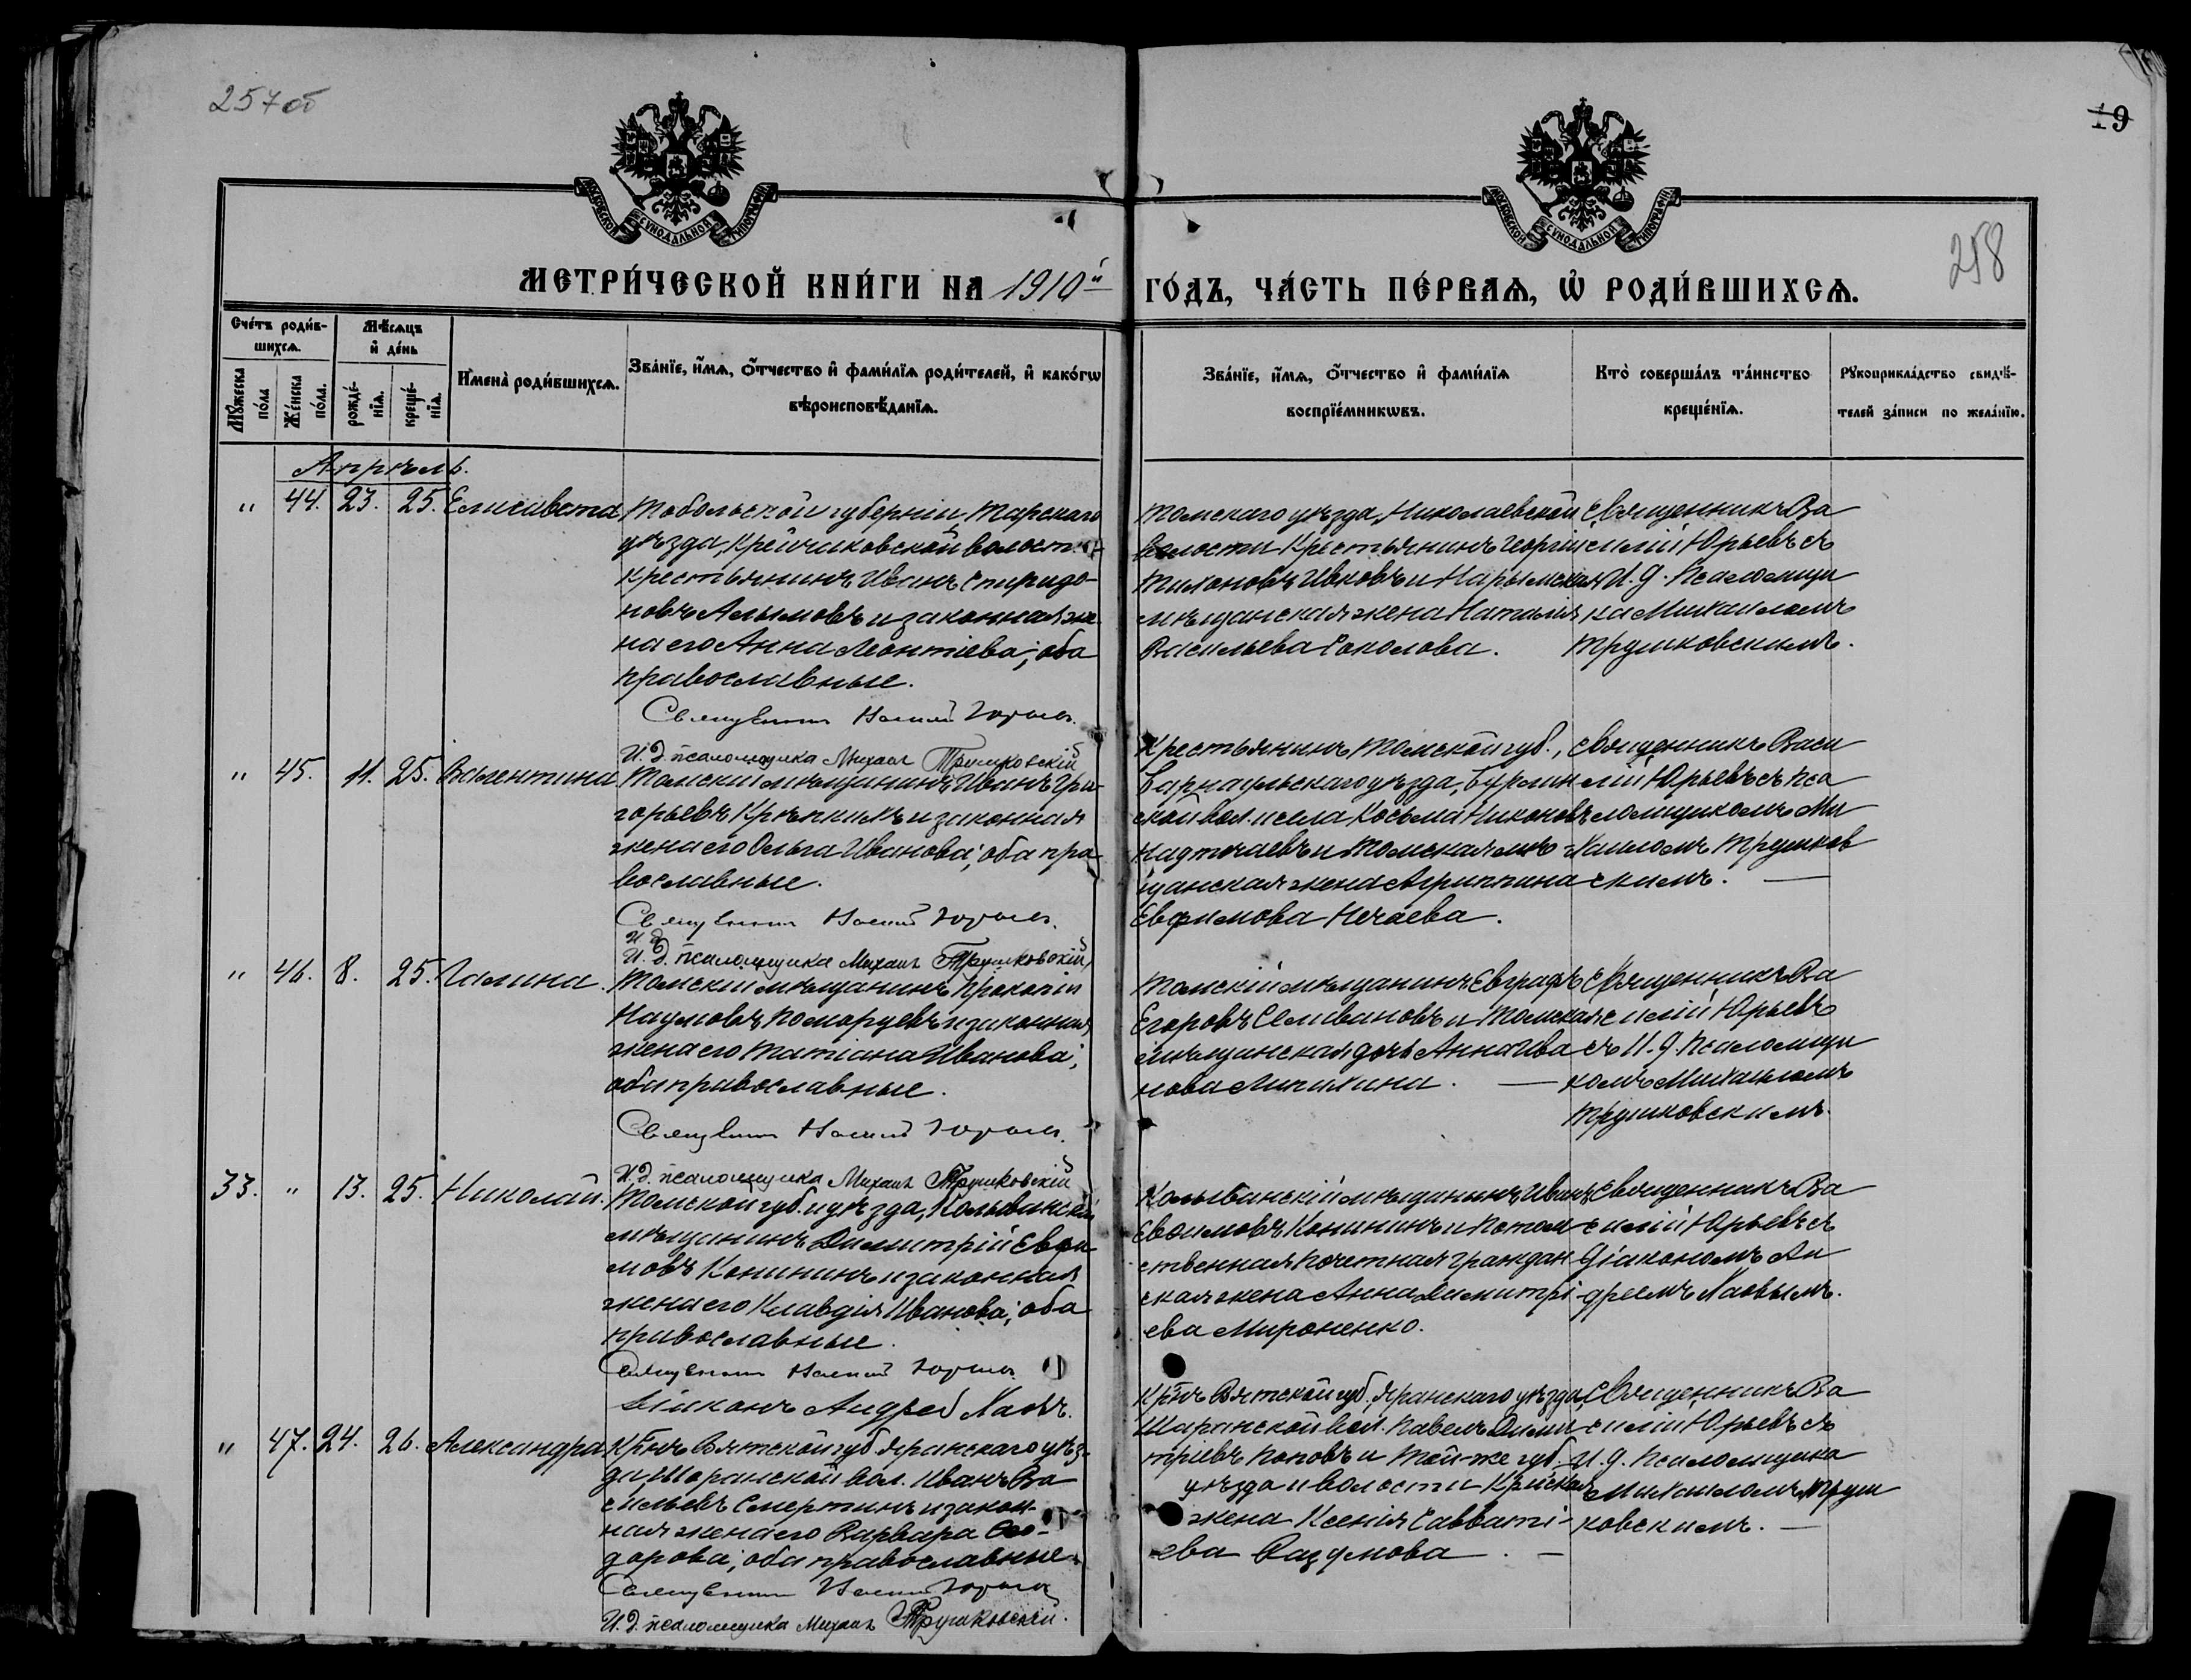 257об
19
258
МОСКОВСКОЙ СѴНОДАЛЬНОЙ ТИПОГРАФІИ
МОСКОВСКОЙ СѴНОДАЛЬНОЙ ТИПОГРАФІИ
МЕТРИ́ЧЕСКОЙ КНИ́ГИ НА 1910й ГО́ДЪ, ЧА́СТЬ ПЕ́РВАѦ, Ѡ҆ РОДИ́ВШИХСѦ.
Сче́тъ роди́в-
шихсѧ.
Мꙋ́жеска по́ла
Же́нска по́ла.
Мѣ́сѧцъ
и҆ де́нь
рожде́-
нїѧ.
креще́-
нїѧ.
И҆мена̀ роди́вшихсѧ.
Зва́нїе, и҆́мѧ, ѻ҆́тчество и҆ фами́лїѧ роди́телей, и҆ како́гѡ
вѣроисповѣ́данїѧ.
Зва́нїе, и҆́мѧ, ѻ҆́тчество и҆ фами́лїѧ
воспрїе́мникѡвъ.
Кто̀ соверша́лъ та́инство
креще́нїѧ.
Рꙋкоприкла́дство свидѣ́-
телей за́писи по жела́нїю.
Апрѣль.
" 44. 23. 25. Елисавета
Тобольской губерніи, Тарскаго
уѣзда, Крейчиковской волости
крестьянинъ Иванъ Спиридо-
новъ Алымовъ и законная же-
на его Анна Леонтіева; оба
православные.
Священникъ Василій Юрьевъ.
И. д. псаломщика Михаилъ Трушковскій
Томскаго уѣзда, Николаевской
волости крестьянинъ Георгій
Тихоновъ Ивковъ и Нарымская
мѣщанская жена Наталія
Васильева Соколова.
Священникъ Ва
силій Юрьевъ съ
И. д. псаломщи
ка Михаиломъ
Трушковскимъ.
" 45. 11. 25. Валентина
Томскій мѣщанинъ Иванъ Гри-
горьевъ Крѣпкихъ и законная
жена его Ольга Иванова; оба пра
вославные.
Священникъ Василій Юрьевъ.
И д
И. д. псаломщика Михаилъ Трушковскій
Крестьянинъ Томской губ.,
Барнаульскаго уѣзда, Бурлин
ской вол. и села Косьма Никоновъ
Надточаевъ и Томская мѣ-
щанская жена Агриппина
Евфимова Нечаева.
Священникъ Васи
лій Юрьевъ съ пса
ломщикомъ Ми
хаиломъ Трушков
скимъ.
" 46. 8. 25. Галина.
Томскій мѣщанинъ Прокопій
Наумовъ Поморцевъ и законная
жена его Татіана Иванова;
оба православные.
Священникъ Василій Юрьевъ.
И. д. псаломщика Михаилъ Трушковскій
Томскій мѣщанинъ Евграфъ
Егоровъ Селивановъ и Томская
мѣщанская дочь Анна Ива
нова Липихина.
Священникъ Ва
силій Юрьевъ
съ И. д. псаломщи
комъ Михаиломъ
Трушковскимъ.
33. " 13. 25. Николай.
Томской губ. и уѣзда, Колыванскій
мѣщанинъ Димитрій Евфи
мовъ Конининъ и законная
жена его Клавдія Иванова; оба
православные.
Священникъ Василій Юрьевъ.
Діаконъ Андрей Хаовъ.
Колыванскій мѣщанинъ Иванъ
Евѳимовъ Конининъ и потом
ственная почетная граждан
ская жена Анна Димитрі
ева Мироненко.
Священникъ Ва
силій Юрьевъ съ
Діакономъ Ан
дреемъ Хаовымъ.
" 47. 24. 26. Александра
Кр-нъ Вятской губ. Яранскаго уѣз-
да, Шаранской вол. Иванъ Ва
сильевъ Смертинъ и закон-
ная жена его Варвара Ѳео-
дорова; оба православные.
Священникъ Василій Юрьевъ
И. д. псаломщика Михаилъ Трушковскій.
Кр-нъ Вятской губ. Яранскаго уѣзда
Шаранской вол. Павелъ Дими
тріевъ Поповъ и той-же губ.
уѣзда и волости кр-нская
жена Ксенія Савваті-
ева Разумова.
Священникъ Ва
силій Юрьевъ съ
И. д. псаломщика
Михаиломъ Труш
ковскимъ.